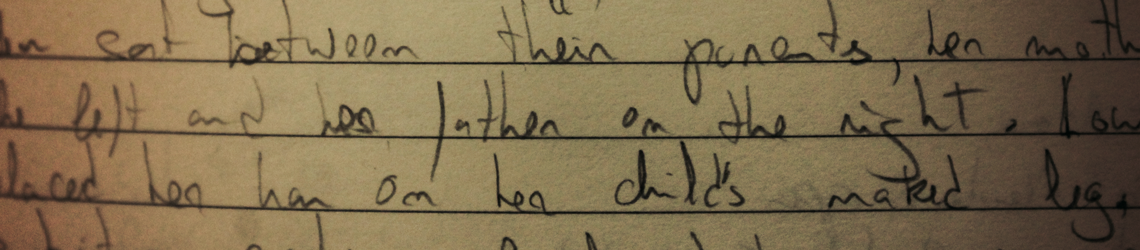 in sat between their parents, her moth
he left and her father on the right. Low
laced her han on her child's naked leg.